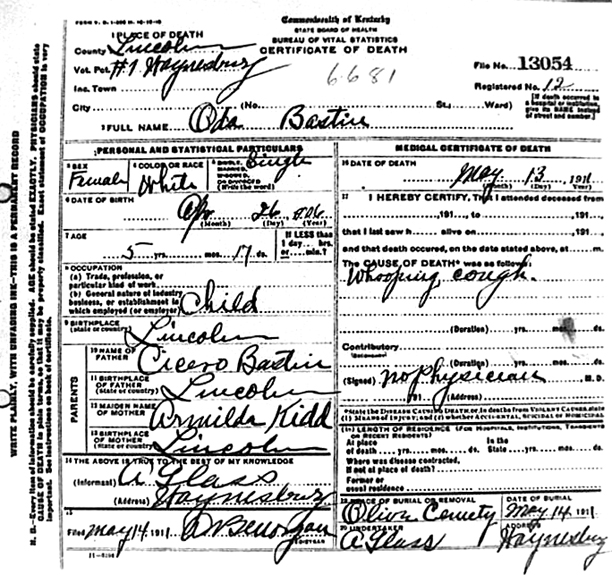 FORM V. S. 1-
Commonwealth of Kentucky
STATE BOARD OF HEALTH
BUREAU OF VITAL STATISTICS
CERTIFICATE OF DEATH
1 PLACE OF DEATH
County Lincoln
Vot. Pct. #1 Waynesburg
Inc. Town
City (No. St.; Ward)
6681
File No. 13054
Registered No. 12
[If death occurred in a hospital or institution, give its NAME instead of street and number.]
2 FULL NAME Oda Bastin
PERSONAL AND STATISTICAL PARTICULARS
3 SEX Female
4 COLOR OR RACE White
5 SINGLE, MARRIED, WIDOWED, OR DIVORCED (Write the word) Single
6 DATE OF BIRTH
Apr 26
(Month) (Day) (Year)
7 AGE
5 yrs. mos. 17 ds.
If LESS than 1 day... hrs. or... min.?
8 OCCUPATION
(a) Trade, profession, or particular kind of work
(b) General nature of industry business, or establishment in which employed (or employer) Child
9 BIRTHPLACE
(State or country) Lincoln
PARENTS
10 NAME OF FATHER Cicero Bastin
11 BIRTHPLACE OF FATHER (State or country) Lincoln
12 MAIDEN NAME OF MOTHER Armilda Kidd
13 BIRTHPLACE OF MOTHER (State or country) Lincoln
14 THE ABOVE IS TRUE TO THE BEST OF MY KNOWLEDGE
(Informant) A Glass
(Address) Waynesburg
15
Filed May 14 1911
11-5196
MEDICAL CERTIFICATE OF DEATH
16 DATE OF DEATH
May 13, 1911
(Month) (Day) (Year)
17 I HEREBY CERTIFY, That I attended deceased from
, 191 , to , 191 ,
that I last saw h alive on , 191 ,
and that death occured, on the date stated above, at m.
The CAUSE OF DEATH* was as follows:
Whooping cough.
(Duration) yrs. mos. ds.
Contributory
(Secondary)
(Duration) yrs. mos. ds.
(Signed) no Physician M. D.
, 191 (Address)
*State the DISEASE CAUSING DEATH, or in deaths from VIOLENT CAUSES state (1) MEANS OF INJURY; and (2) whether ACCIDENTAL, SUICIDAL or HOMICIDAL.
18 LENGTH OF RESIDENCE (FOR HOSPITALS, INSTITUTIONS, TRANSIENTS OR RECENT RESIDENTS)
At place of death yrs. mos. ds. In the State yrs. mos. ds.
Where was disease contracted, if not at place of death?
Former or usual residence
19 PLACE OF BURIAL OR REMOVAL
DATE OF BURIAL
May 14, 1911
20 UNDERTAKER
A Glass
ADDRESS
Waynesburg
WRITE PLAINLY, WITH UNFADING INK—THIS IS A PERMANENT RECORD
N. B.—Every item of information should be carefully supplied. AGE should be stated EXACTLY. PHYSICIANS should state CAUSE OF DEATH in plain terms, so that it may be properly classified. Exact statement of OCCUPATION is very important. See instructions on back of certificate.